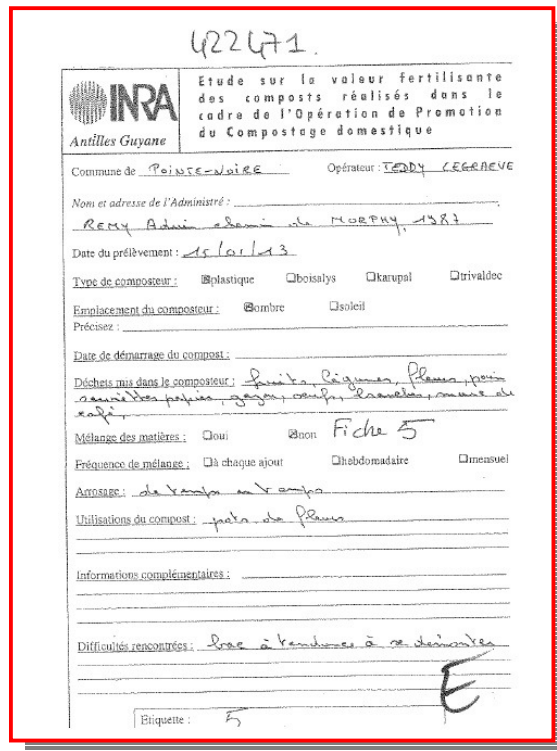 422471.
INRA
Antilles Guyane
Etude sur la valeur fertilisante
des composts réalisés dans le
cadre de l'Opération de Promotion
du Compostage domestique
Commune de POINTE-NOIRE Opérateur : TEDDY CEGRAEVE
Nom et adresse de l'Administré :
REMY Adrien chemin de MORPHY, 1987
Date du prélèvement : 15/01/13
Type de composteur : ☒plastique ☐boisalys ☐karupal ☐trivaldec
Emplacement du composteur : ☒ombre ☐soleil
Précisez :
Date de démarrage du compost :
Déchets mis dans le composteur : fruits, légumes, fleurs, pain
serviettes papier, gazon, oeufs, branches, marc de
café,
Mélange des matières : ☐oui ☒non Fiche 5
Fréquence de mélange : ☐à chaque ajout ☐hebdomadaire ☐mensuel
Arrosage : de temps en temps
Utilisations du compost : pots de fleurs
Informations complémentaires :
Difficultés rencontrées : bac à tendance à se démonter
E
Etiquette : 5